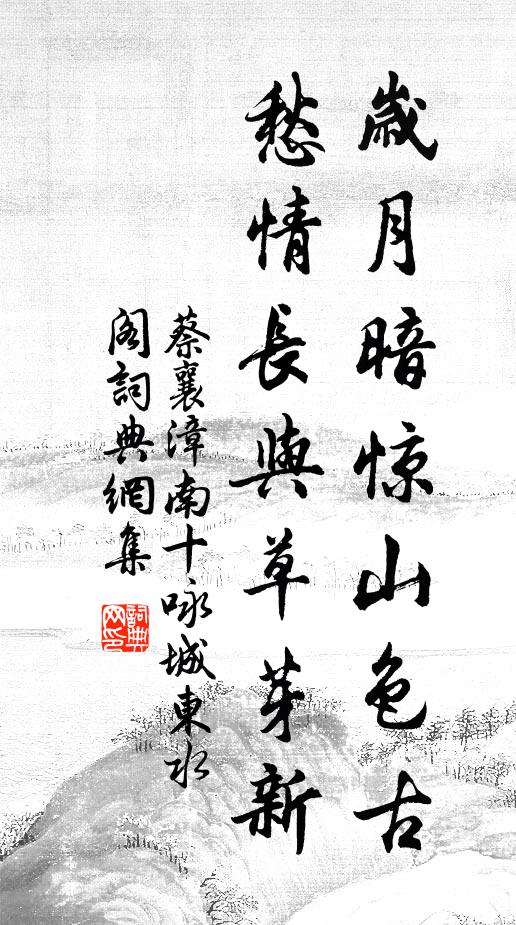 歲月暗惊山色古
愁情長與草芽新
蔡襄漳南十咏城東水
阁詞典網集
詞典
网印